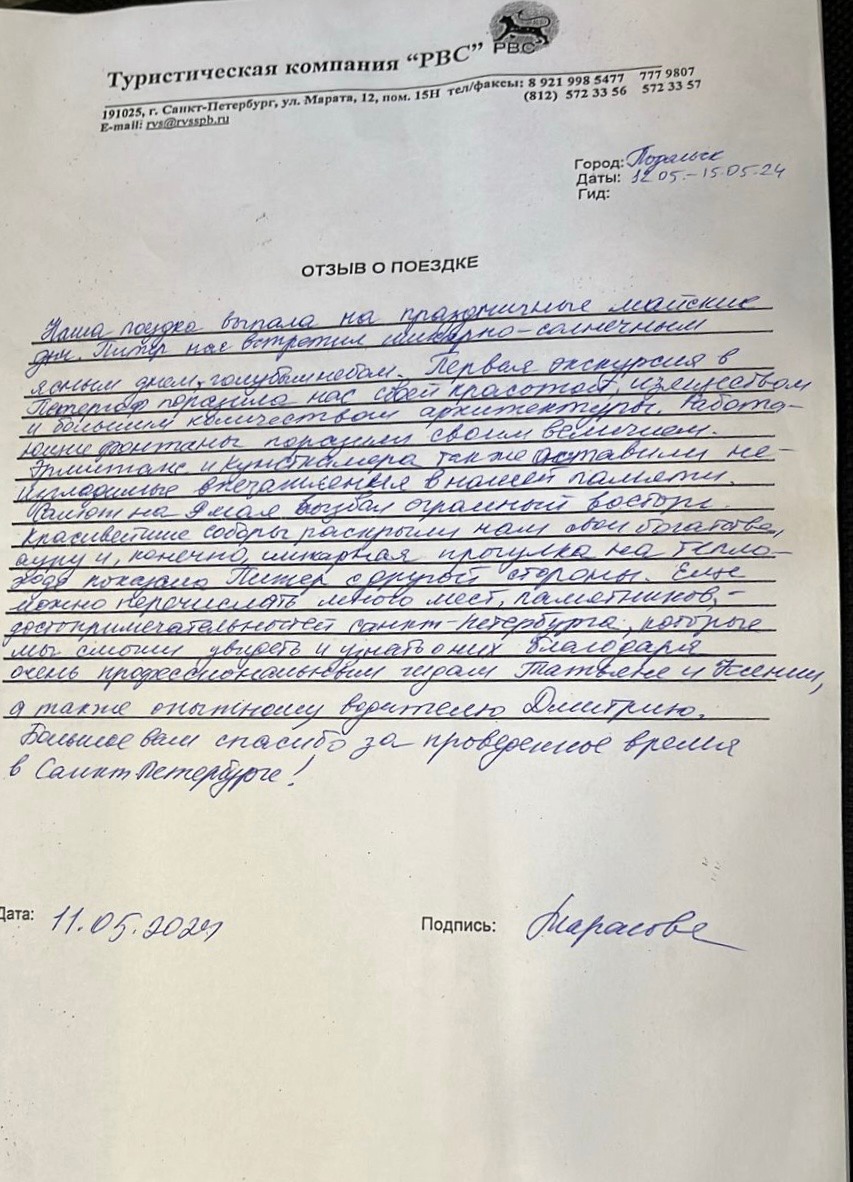 Туристическая компания “РВС”
РВС
191025, г. Санкт-Петербург, ул. Марата, 12, пом. 15Н тел/факсы: 8 921 998 5477 777 9807
(812) 572 33 56 572 33 57
E-mail: rvs@rvsspb.ru
Город: Подольск
Даты: 12.05.–15.05.24
Гид:
ОТЗЫВ О ПОЕЗДКЕ
Наша поездка выпала на праздничные майские
дни. Питер нас встретил шикарно-солнечным
ясным днем, голубым небом. Первая экскурсия в
Петергоф поразила нас своей красотой, изяществом
и большим количеством архитектуры. Работа-
ющие фонтаны поразили своим величием.
Эрмитаж и Кунсткамера также оставили не-
изгладимые впечатления в нашей памяти.
Салют на 9 мая вызвал огромный восторг.
Красивейшие соборы раскрыли нам свои богатства,
ауру и, конечно, шикарная прогулка на тепло-
ходе показала Питер с другой стороны. Еще
можно перечислять много мест, памятников,-
достопримечательностей Санкт-Петербурга, которые
мы смогли увидеть и узнать о них благодаря
очень профессиональным гидам Татьяне и Ксении,
а также опытному водителю Дмитрию.
Большое вам спасибо за проведенное время
в Санкт-Петербурге!
Дата: 11.05.2024
Подпись: Тарасова